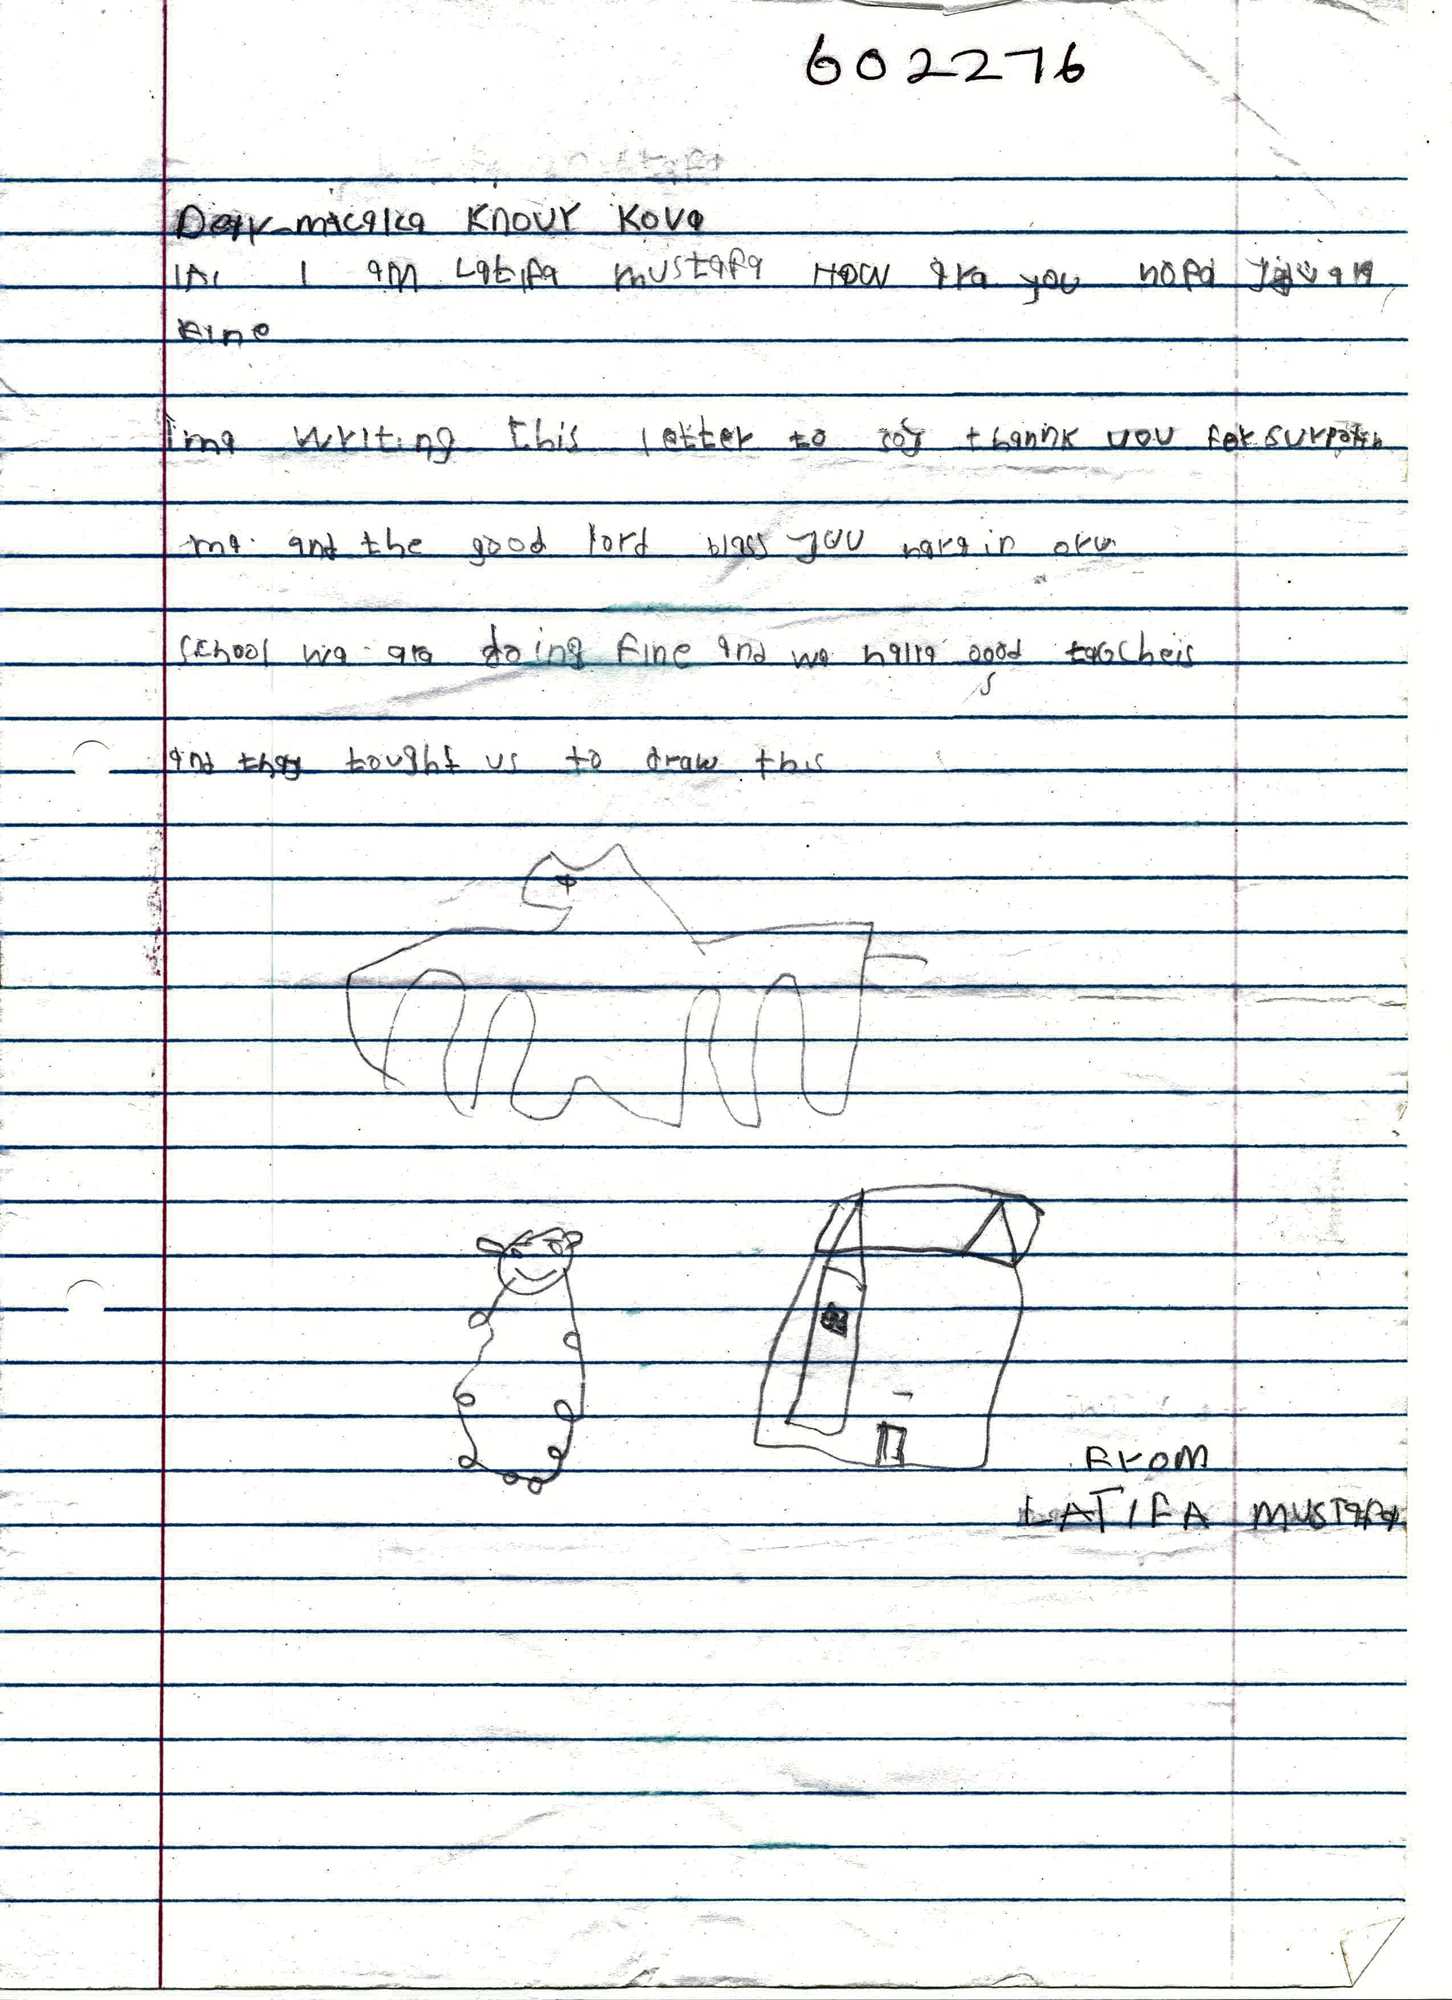 602276
Dear micalca Knour Kova
I am Latifa mustafa How ara you hopa you are
Fine
ima writing this letter to say thannk you for
ma. and the good lord blass you hara in
school wa ara doing fine and wa good teacheis
and thay tought us to draw this
From
LATIFA MUSTAFA